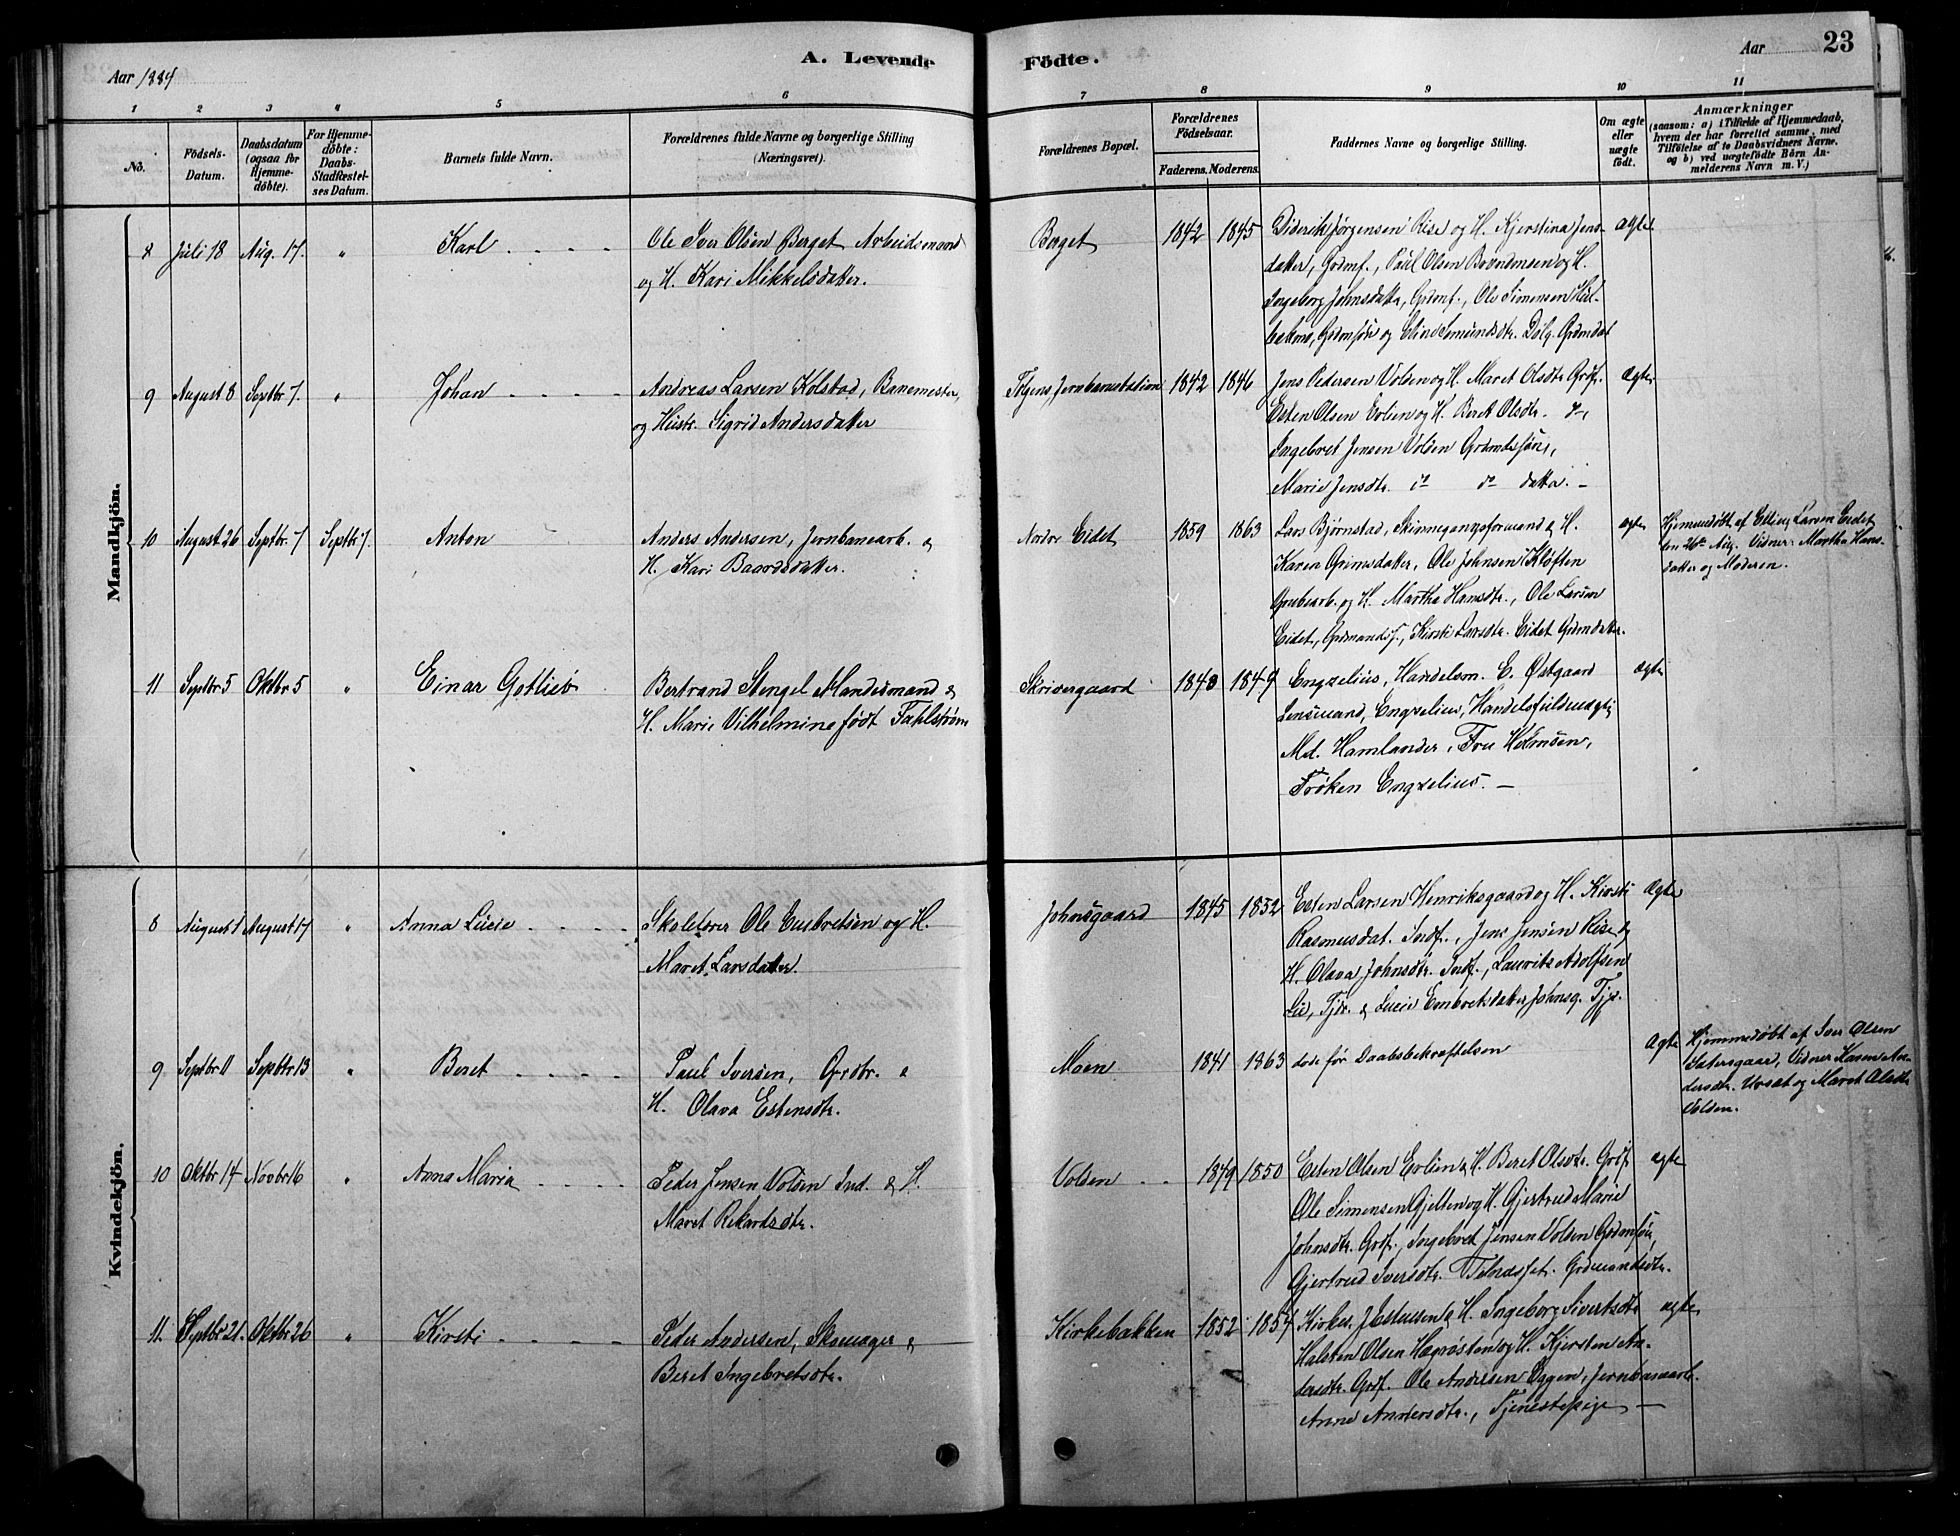 A. Levende Födte.
Aar 1884
Aar 23
1 2 3 4 5 6 7 8 9 10 11
No.
Födsels-Datum.
Daabsdatum (ogsaa for Hjemme-döbte).
For Hjemme-döbte: Daabs-Stadfæstel-ses Datum.
Barnets fulde Navn.
Forældrenes fulde Navne og borgerlige Stilling
(Næringsvei).
Forældrenes Bopæl.
Forældrenes Födselsaar.
Faderens. Moderens.
Faddernes Navne og borgerlige Stilling.
Om ægte eller uægte födt.
Anmærkninger
(saasom: a) i Tilfælde af Hjemmedaab,
hvem der har forrettet samme, med
Tilföielse af to Daabsvidners Navne,
og b) ved uægtefödte Börn An-
melderens Navn m. V.)
Mandkjön.
8 Juli 18 Aug. 17. " Karl
Ole Iver Olsen Berget Arbeidsmand
og H. Kari Mikkelsdatter.
Berget 1842 1845
Diderik Jørgensen Rise og H. Kjerstina Jens-
datter, Grdmf., Paul Olsen og H.
Ingeborg Johnsdatter, Grdmf., Ole Simensen
Grdmsön og Eline dtr. Grdmdat
ægte
9 August 8 Septbr 7. " Johan
Andreas Larsen Kolstad, Banemester,
og Hustr. Sigrid Andersdatter
Tolgens Jernbanestation 1842 1846
Jens Pedersen Volden og H. Maret Olsdtr Grdf.
Esten Olsen Erlien og H. Beret Olsdtr. do,
Ingebret Jensen Volden Grdmdssön,
Marie Jensdtr. do do datter. —
Ægte
10 August 26 Septbr. 7 Septbr 7. Anton
Anders Andersen, Jernbanearb. &
H. Kari Baardsdatter.
Nordre Eidet 1859 1863
Lars Bjørnstad, Skinnegangsformand & H.
Karen Grimsdatter, Ole Johnsen Kløften
Grubearb. og H. Martha Hansdtr., Ole Larsen
Eidet, Grdmands., Kirsti Larsdtr. Eidet Grdmdatter.
ægte
Hjemmedøbt af Elling Larsen Eidet
den 26de Aug. Vidner: Martha Hans-
datter og Moderen.
11 Septbr 5 Oktbr 5 " Einar Gotlieb
Bertrand Stengel Handelsmand &
H. Marie Vilhelmine født Fahlstrøm
Skrivergaard 1848 1849
Engzelius, Handelsm. E. Østgaard
Lensmand, Engzelius, Handelsfuldmægtig
Md. Hamlander, Fru Holmsen,
Frøken Engzelius. —
ægte
Kvindekjön.
8 August 1 August 17 " Anna Lucie
Skolelærer Ole Embretsen og H.
Maret Larsdatter.
Johnsgaard 1845 1852
Esten Larsen Henriksgaard og H. Kirsti
Rasmusdat. Indf., Jens Jensen Rise og
H. Olava Johnsdtr. Indf., Laurits Adolfsen
Lie, Tjdr. & Lucie Embretsdatter Johnsg. Tjp.
Ægte
9 Septbr 11 Septbr 13 " Beret
Paul Iversen, Grdbr. &
H. Olava Estensdtr.
Moen 1841 1863
døde før Daabsbekræftelsen
Ægte
Hjemmedøbt af Iver Olsen
Vidner Karen An-
dersdtr. og Maret Olsdtr
Volden.
10 Oktbr 14 Novbr 16 " Anna Maria
Peder Jensen Volden Ind. & H.
Maret Rikardsdtr.
Volden 1849 1850
Esten Olsen Erlien & H. Beret Olsdtr. Grdf
Ole Simensen Gjelten og H. Gjertrud Marie
Johnsdtr. Grdf., Ingebret Jensen Volden Grdmsön,
Gjertrud Iversdtr. Telnesset. Grdmandsdtr.
ægte
11. Septbr 21. Oktbr. 26 " Kirsti
Peder Andersen, Skomager &
Beret Ingebretsdtr.
Kirkebakken 1852 1854
Kirkes. J. Estensen & H. Ingeborg Sivertsdtr
Halsten Olsen og H. Kjersten An-
dersdtr. Grdf. Ole Andersen Eggen, Jernbanearb.
Anne Andersdtr., Tjenestepige —
ægte